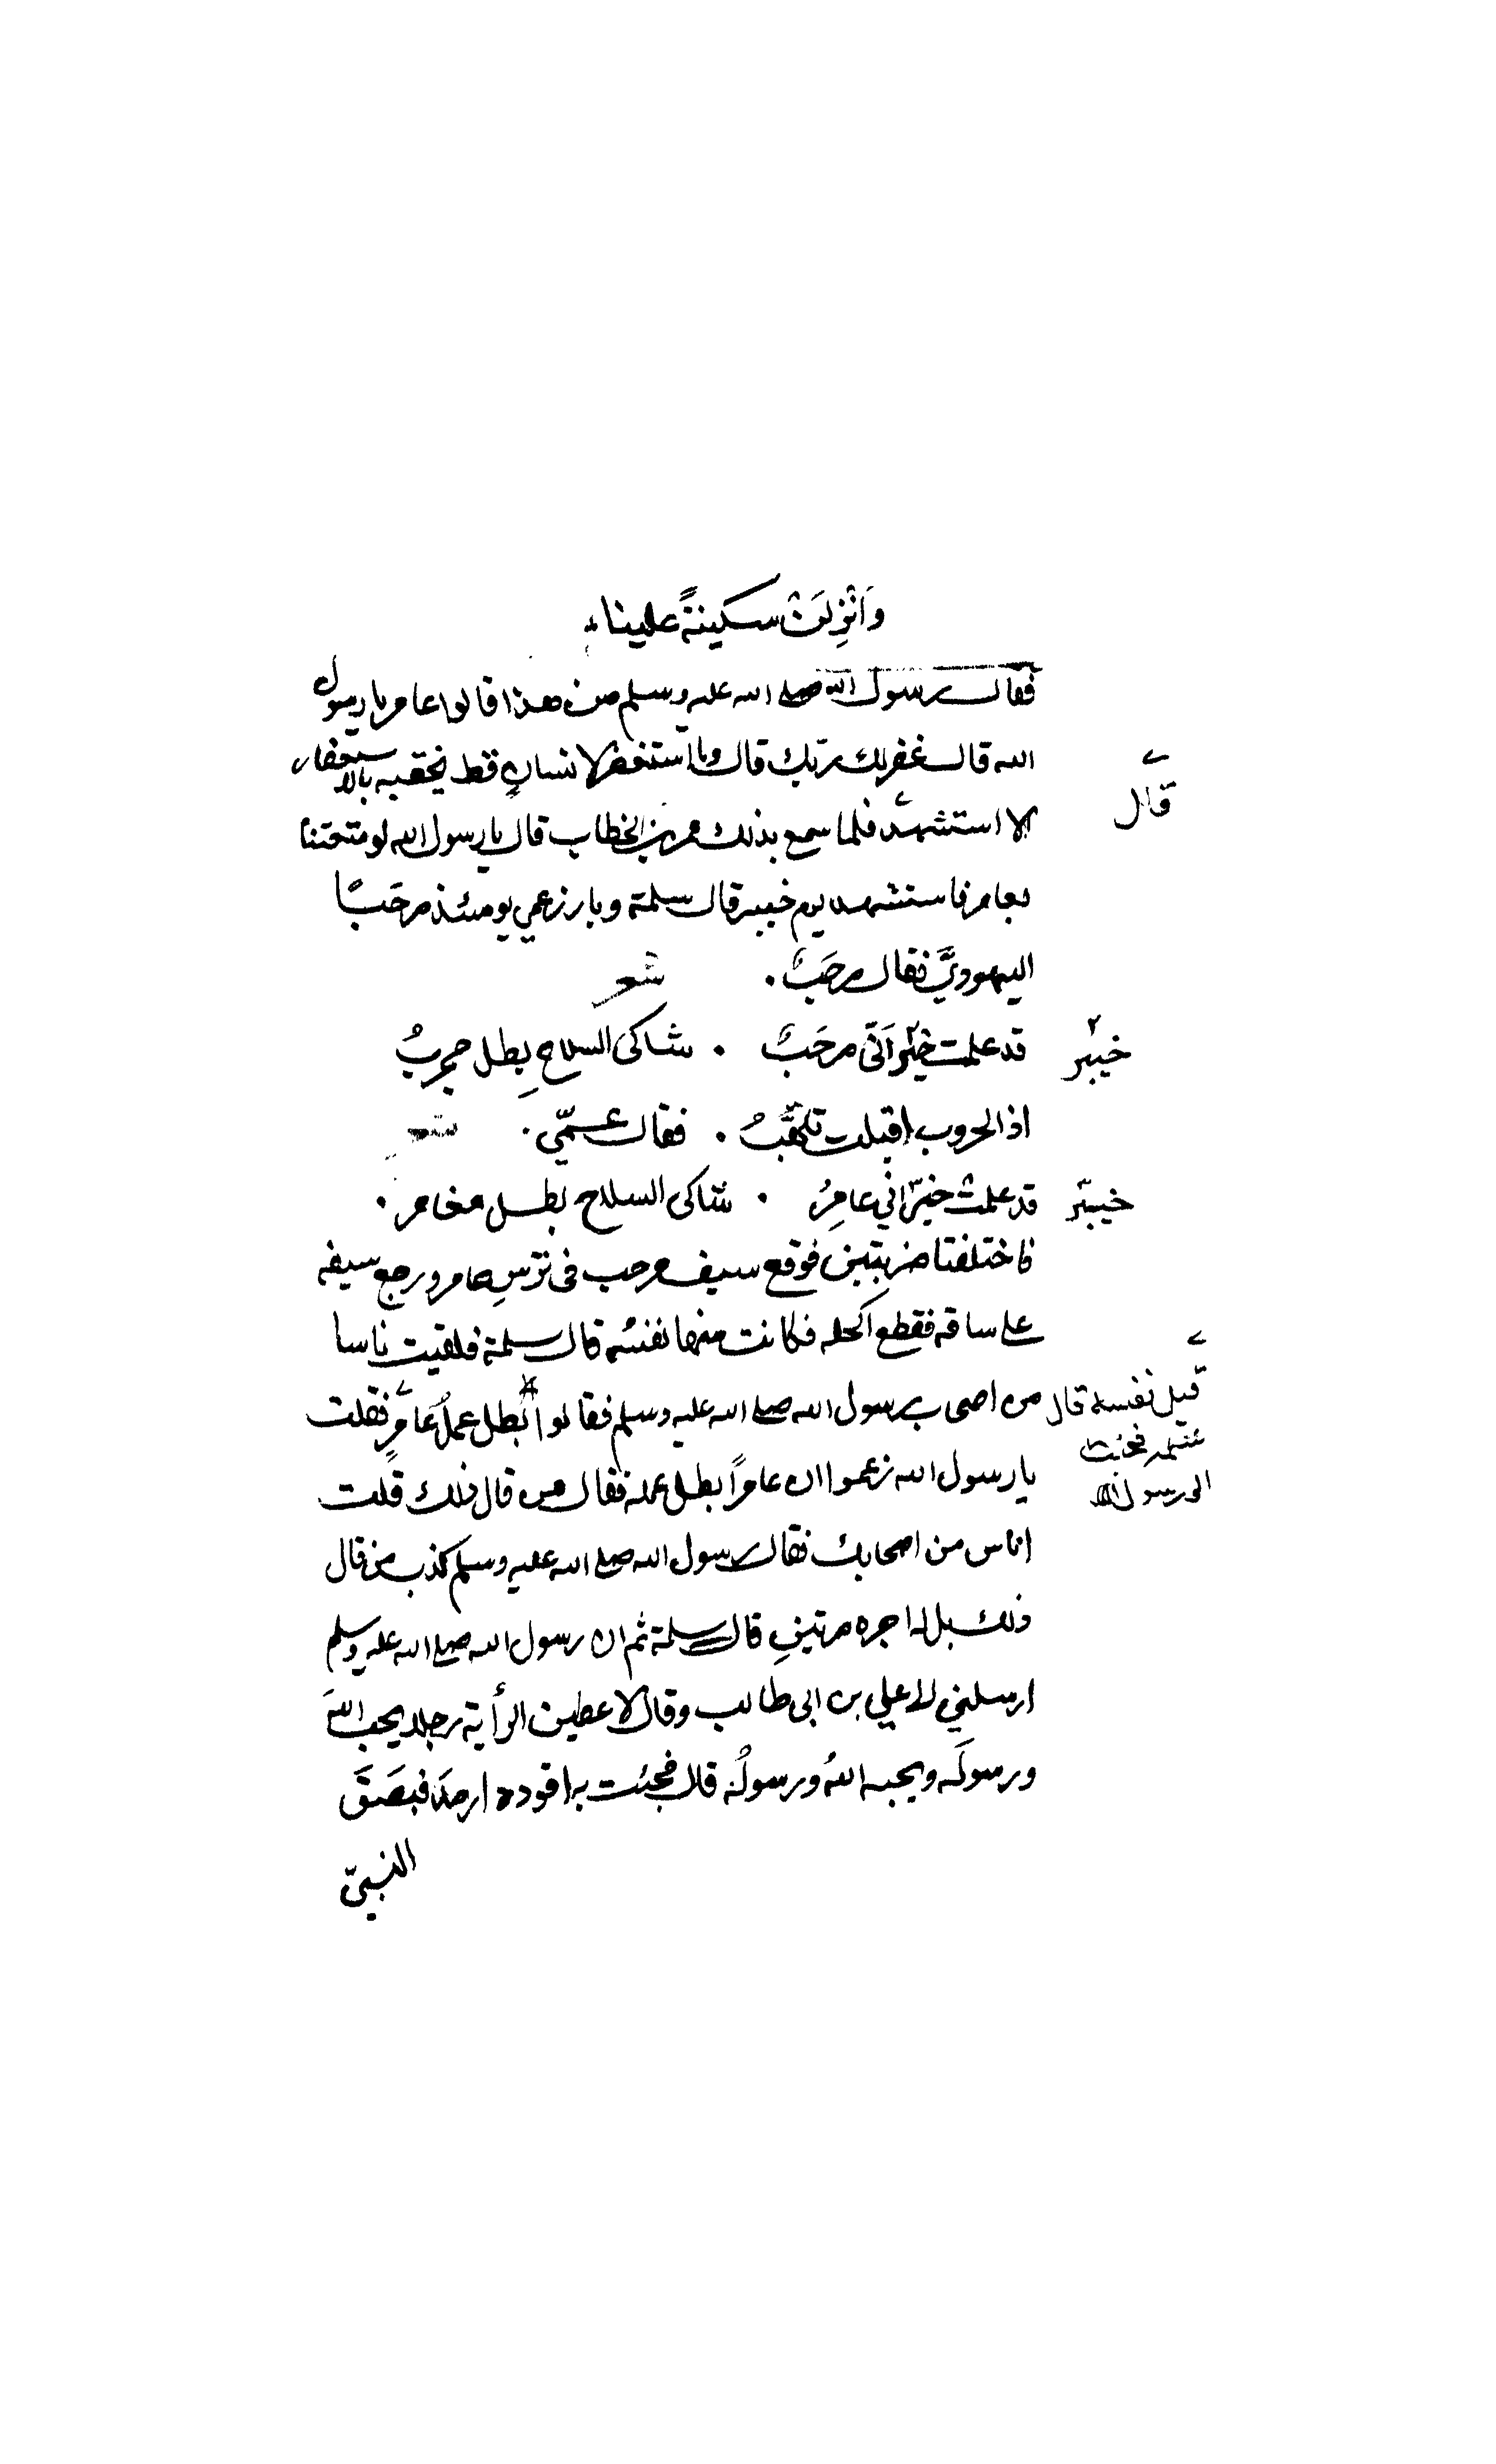 وَاَنْزِلَنْ سكينةً علينا
فقال رسول الله صلى الله عليه وسلم من هذا قالوا عامر يا رسول
الله قال غفر لك ربّك قال وما استغفر لانسانٍ قط يخصه بالاستغفار
قال
الا استشهد فلما سمع بذلك عمر بن الخطاب قال يا رسول الله لو متعتنا
بعامر فاستشهد يوم خيبر قال سلمة وبارز عمي يومئذ مرحَبًا
اليهوديَّ فقال مرحَبٌ . شعر
قد علمت خيبر اَنّى مرحَبٌ . شاكى السلاحِ بطل مجربُ
خيبر
اذا الحروب اقبلت تلهَّبُ . فقال عمّي . شعر
قد علمتْ خيبر انّي عامِرُ . شاكى السلاح بطل مغامر .
خيبر
فاختلفنا ضربتين فوقع سيف مرحب فى تُرْسِ عامر ورجع سيفه
على ساقه فقطع اكحله فكانت منها نفسُه قال سلمة فلقيت ناسا
من اصحاب رسول الله صلى الله عليه وسلم فقالوا بطل عملُ عامرٍ فقلت
قيل نفسه قال
سلمة فجئت
الى رسول الله
يا رسول الله زعموا ان عامرًا بطل عمله فقال من قال ذلك قلت
اناس من اصحابك فقال رسول الله صلى الله عليه وسلم كذب من قال
ذلك بل له اجره مرتينِ قال سلمة ثم ان رسول الله صلى الله عليه وسلم
ارسلني الى علي بن ابى طالب وقال لاعطين الرأية رجلا يحب اللهَ
ورسولَه ويحبه اللهُ ورسولُه قال فجئت به اقوده ارمدَ فبصَقَ
النبيّ